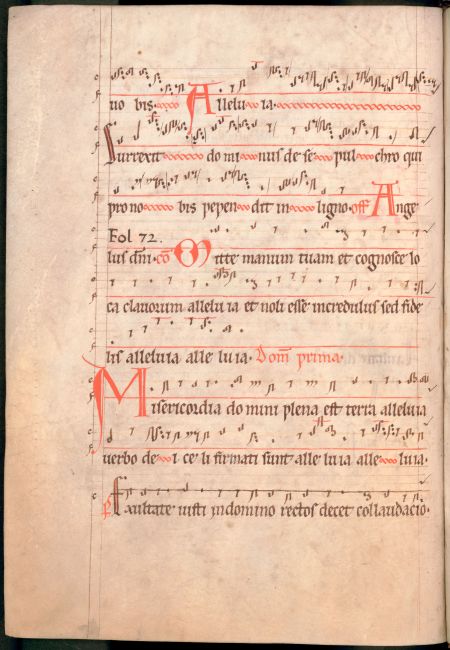 uo bis. Allelu ia.
Surrexit do mi nus de se pul chro qui
pro no bis pepen dit in ligno. off Ange
Fol 72.
lus dm̄i. cō Mitte manum tuam et cognosce lo
ca clauorum allelu ia et noli esse incredulus sed fide
lis alleluia alle luia. Dom̄ prima.
Misericordia do mini plena est terra alleluia
uerbo de i ce li firmati sunt alle luia alle luia.
p̄s Exultate iusti in domino rectos decet collaudacio.